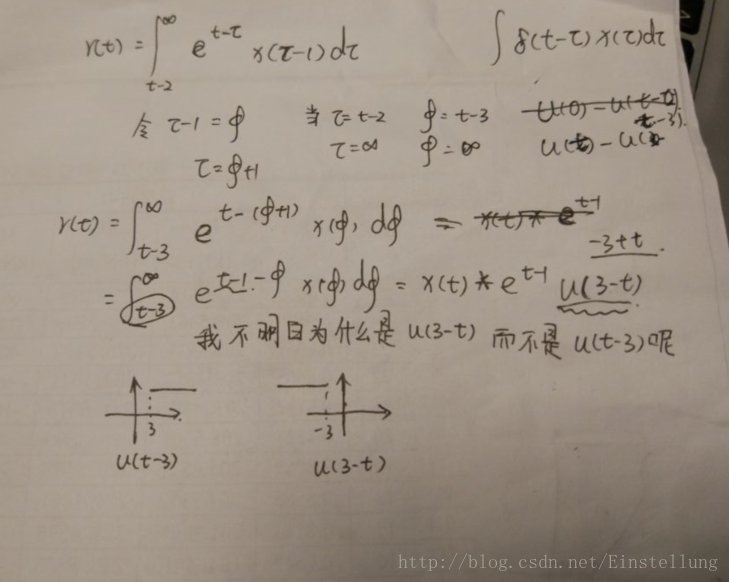 r(t) = ∫_{t-2}^{∞} e^{t-τ} x(τ-1)dτ    ∫ δ(t-τ) x(τ)dτ
令 τ-1 = φ    当 τ = t-2    φ = t-3
τ = φ+1    τ = ∞    φ = ∞    u(t) - u(
r(t) = ∫_{t-3}^{∞} e^{t-(φ+1)} x(φ) dφ = x(t) * e^{t-1}
-3+t
= ∫_{t-3}^{∞} e^{t-1-φ} x(φ) dφ = x(t) * e^{t-1} u(3-t)
我不明白为什么是 u(3-t) 而不是 u(t-3) 呢
3    -3    1
u(t-3)    u(3-t)
http://blog.csdn.net/Einstellung